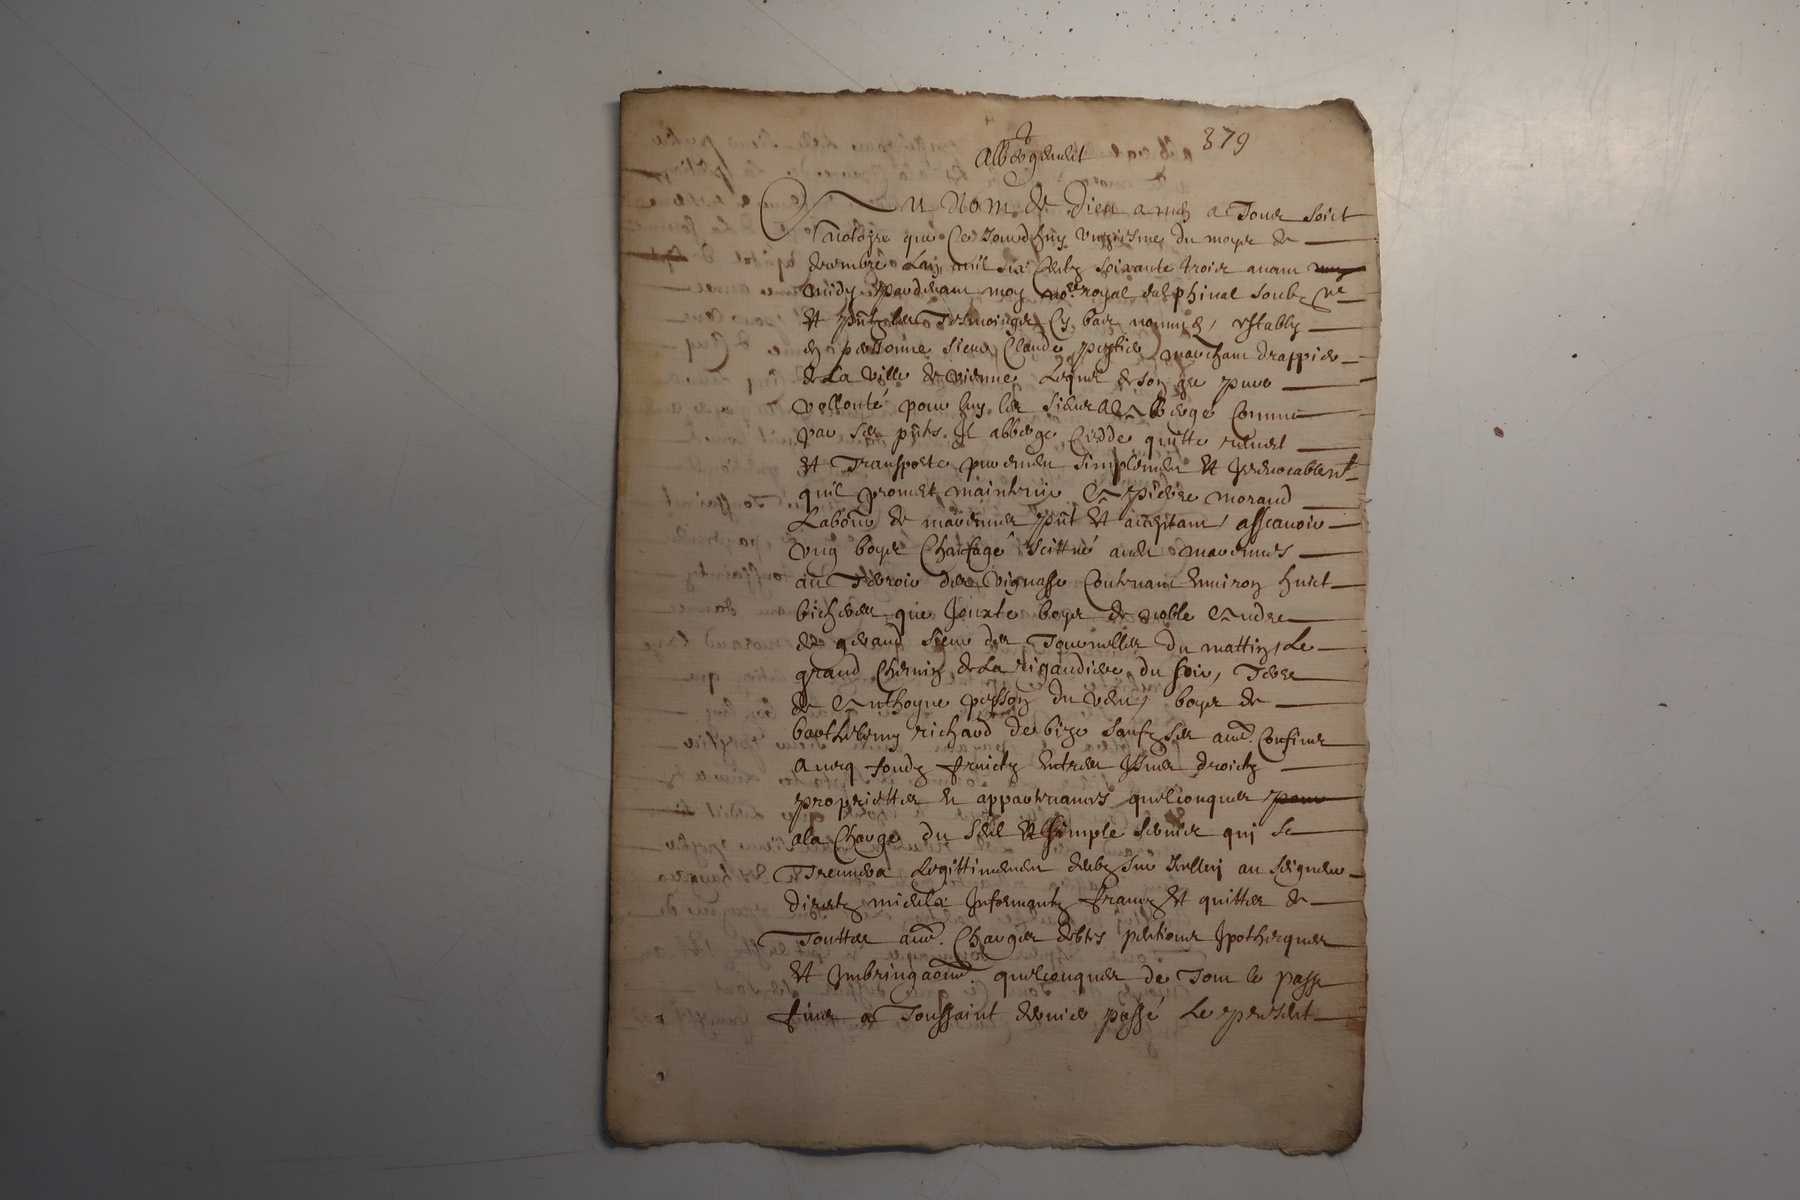 379
Albergement
Au Nom de Dieu amen a Tous soict
notoyre que ce Jourdhuy vingiesme du moys de
decembre Lan mil six centz soixante trois avant
midy pardevant moy no.re royal dalphinal soubz.né
et pntz les Tesmoingz cy bas nommes, establi
en personne sieur Claude marchant drappier
de La Ville de vienne Lequel de son gre pure
vollonté pour luy les siens a albergé comme
par ses pnts Il alberge cedde quitte remet
et Transporte purement simplement et Irrevocablemt
quil promet maintenir a pierre morand
Labour de marennes pnt et acceptant, asscavoir
ung boys Chasage scittué audit marennes
au Terroir des vignasse Contenant Environ huict
bicherees que Jouxte boys de noble Andre
de gerand sieur des Tournelles du mattin, Le
grand Chemin de La rigaudiere du soir, Terre
de Anthoyne du vent, boys de
barthelemy richard de bize saufz ses au.e Confins
avecq fondz fruictz Entrees Issues droictz
propriettes et appartenances quelconques
ala Charge du Seel et simple servis qui se
Treuvera Legittimement deubz sur Icelluy au seigneur
direct, francz et quittes de
Touttes au.e Charges debtes pentions Ipotheques
et Imbringaon.e quelconques de Tout le passe
Jusques a Toussaint dernier passé Le present